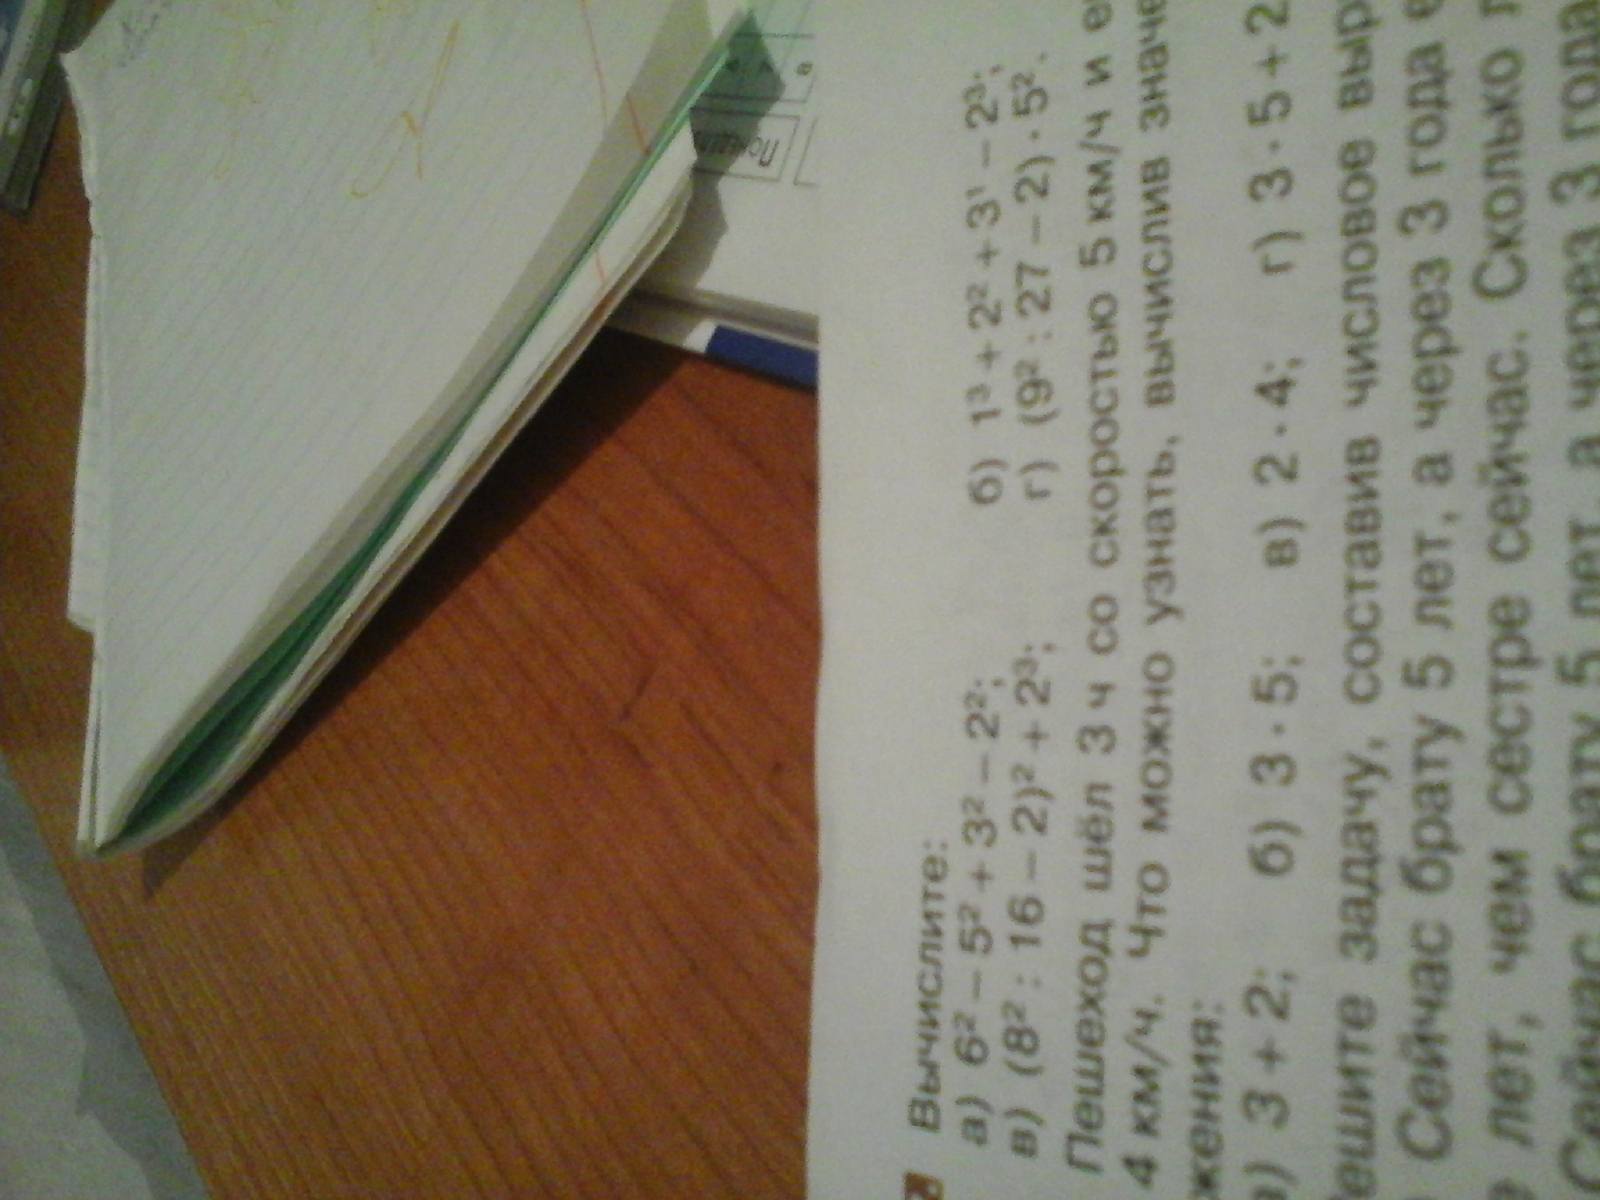 Вычислите:
а) 6² − 5² + 3² − 2²; б) 1³ + 2² + 3¹ − 2³;
в) (8² : 16 − 2)² + 2³; г) (9² : 27 − 2) · 5².
Пешеход шёл 3 ч со скоростью 5 км/ч и
4 км/ч. Что можно узнать, вычислив значе
жения:
) 3 + 2; б) 3 · 5; в) 2 · 4; г) 3 · 5 + 2
ешите задачу, составив числовое выр
Сейчас брату 5 лет, а через 3 года
лет, чем сестре сейчас. Сколько
Сейчас брату 5 лет, а через 3 года